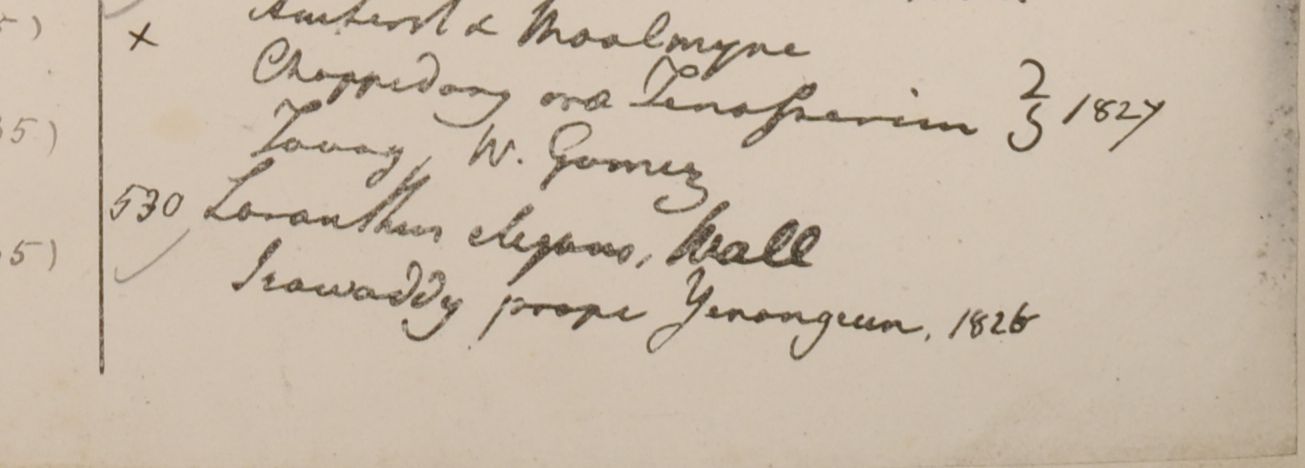 5)
x Amherst & Moalmyne
Choppedong ora Tenasserim 2/3 1827
35) Tavoy, W. Gomez
530 Loranthus elegans, Wall
35) Irawaddy prope Yenangeun, 1826